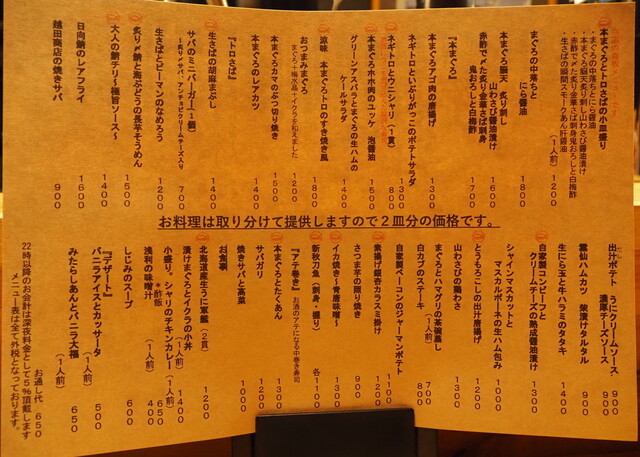 本まぐろとトロさばの小皿盛り
・まぐろの中落ちとにら醤油
・本まぐろ脳天炙り刺し山わさび醤油漬け
・赤酢で〆た炙り金華さば刺身鬼おろしと白梅酢
・生さばの瞬間スモークあん肝醤油
(1人前) 1200
まぐろの中落ちと
にら醤油
1600
本まぐろ脳天 炙り刺し
山わさび醤油漬け
1700
赤酢で〆た炙り金華さば刺身
鬼おろしと白梅酢
1600
『本まぐろ』
本まぐろアゴ肉の唐揚げ
1300
ネギトロといぶりがっこのポテトサラダ
1300
ネギトロとウニシャリ(1貫)
800
本まぐろホホ肉のユッケ 泡醤油
1500
グリーンアスパラとまぐろの生ハムの
ケールサラダ
1400
涼味 本まぐろトロのすき焼き風
1800
おつまみまぐろ
まぐろ+梅水晶+イクラを和えました
1200
本まぐろカマのぶつ切り焼き
1500
本まぐろのレアカツ
1400
『トロさば』
生さばの胡麻まぶし
1400
サバのミニバーガー(1個)
〜炙り〆サバ、アンチョビクリームチーズ入り
700
生さばとピーマンのなめろう
1200
炙り〆鯖と海ぶどうの長芋そうめん
1500
大人の鯖チリ〜極旨ソース〜
1400
日向鯖のレアフライ
1600
越田商店の焼きサバ
900
お料理は取り分けて提供しますので2皿分の価格です。
出汁ポテト うにクリームソース
900
濃厚チーズソース
900
雲仙ハムカツ 柴漬けタルタル
900
生にら玉と牛ハラミのタタキ
1400
自家製コンビーフと
クリームチーズの熟成醤油漬け
1300
シャインマスカットと
マスカルポーネの生ハム包み
1000
とうもろこしの出汁唐揚げ
1200
山わさびの鶏わさ
1200
まぐろとハマグリの茶碗蒸し
(1人前) 700
白カブのステーキ
800
自家製ベーコンのジャーマンポテト
1100
素揚げ銀杏カラスミ掛け
1200
さつま芋の照り焼き
900
イカ焼き〜青唐味噌〜
1300
新秋刀魚(刺身・握り)
各1100
『アテ巻き』 お酒のアテになる中巻き寿司
本まぐろとたくあん
1300
サバガリ
1200
焼きサバと高菜
1000
お食事
北海道産生うに軍艦(2貫)
1200
漬けまぐろとイクラの小丼
(1人前) 1400
小盛り。シャリのチキンカレー(1人前)
*酢飯
650
浅利の味噌汁
(1人前) 400
しじみのスープ
600
『デザート』
バニラアイスとカッサータ
(1人前) 500
みたらしあんとバニラ大福
(1人前) 650
お通し代 650
22時以降のお会計は深夜料金として5%頂戴します
メニュー表は全て外税となっております。